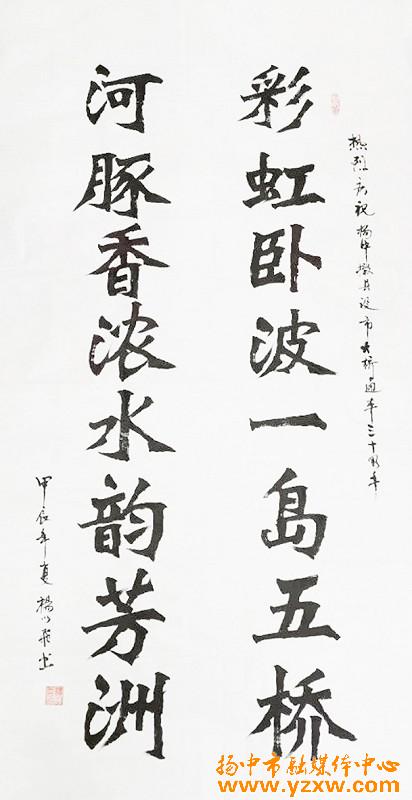 热烈庆祝扬中撤县设市大桥通车三十周年
彩虹卧波一岛五桥
河豚香浓水韵芳洲
甲辰年夏 杨
扬中市融媒体中心
www.yzxw.com